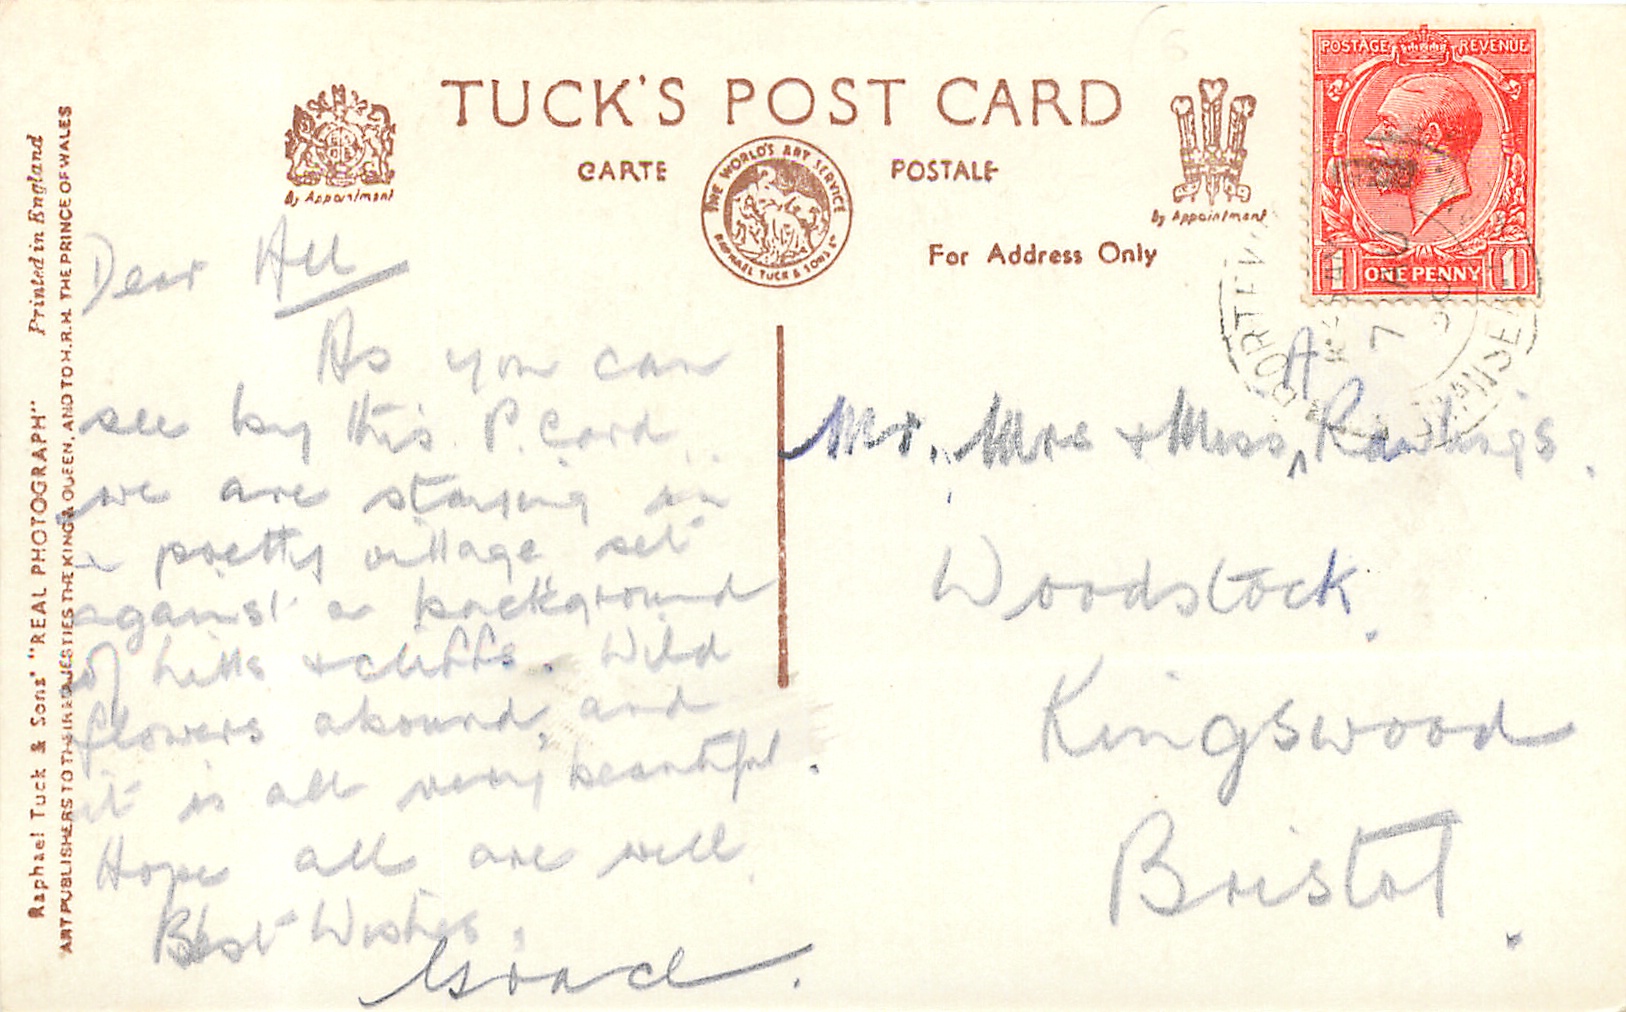 TUCK'S POST CARD
CARTE POSTALE
By Appointment
THE WORLD'S ART SERVICE
RAPHAEL TUCK & SONS LTD
By Appointment
For Address Only
POSTAGE REVENUE
1 ONE PENNY 1
Raphael Tuck & Sons' "REAL PHOTOGRAPH" Printed in England
ART PUBLISHERS TO THEIR MAJESTIES THE KING & QUEEN, AND TO H.R.H. THE PRINCE OF WALES
Dear All
As you can
see by this P. Card
we are staying in
a pretty village set
against a background
of hills + cliffs. Wild
flowers abound, and
it is all very beautiful.
Hope all are well
Best Wishes,
Grace.
A
Mr. Mrs + Miss, Rawlings.
Woodstock.
Kingswood
Bristol.